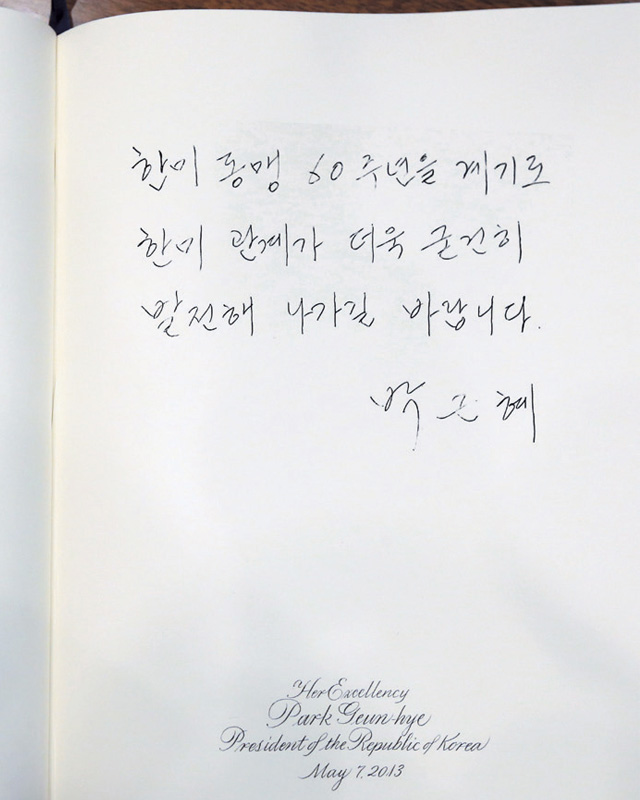 한미 동맹 60주년을 계기로
한미 관계가 더욱 굳건히
발전해 나가길 바랍니다.
박근혜
Her Excellency
Park Geun-hye
President of the Republic of Korea
May 7, 2013